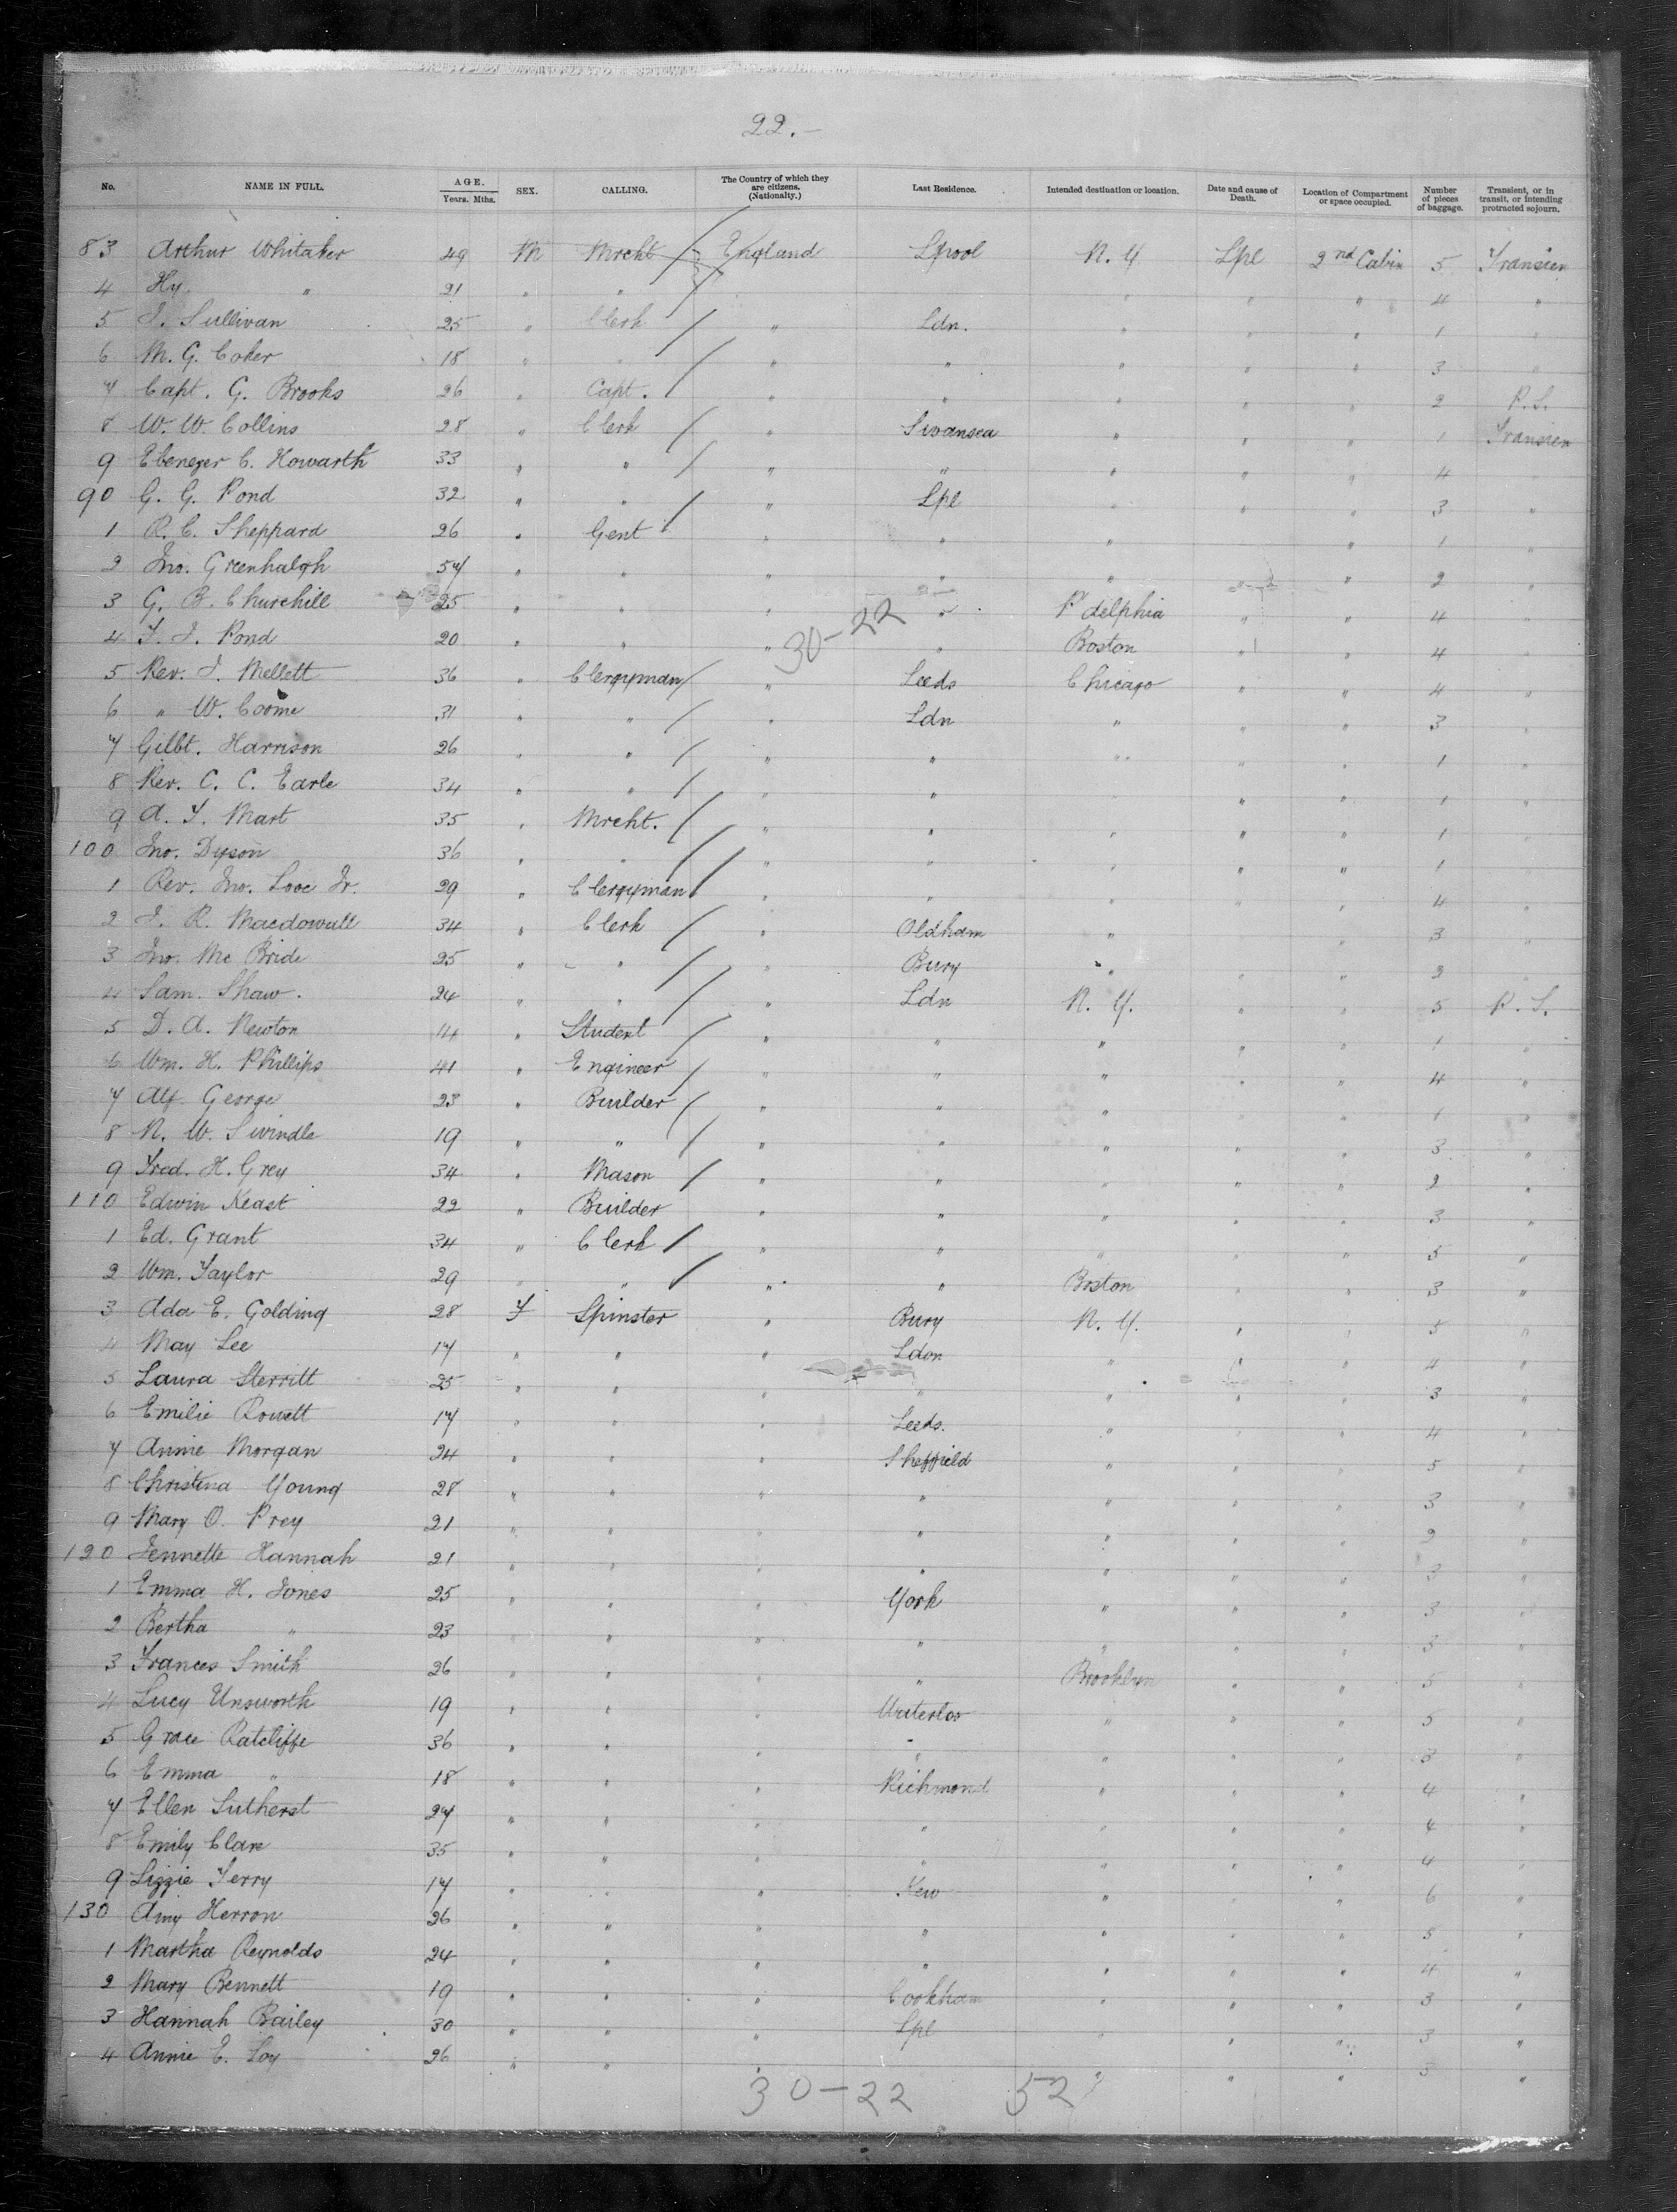 22.-
No. NAME IN FULL. AGE. Years. Mths. SEX. CALLING. The Country of which they are citizens. (Nationality.) Last Residence. Intended destination or location. Date and cause of Death. Location of Compartment or space occupied. Number of pieces of baggage. Transient, or in transit, or intending protracted sojourn.
83 Arthur Whitaker 49 M Mrcht England Lpool N. Y Lpl 2nd Cabin 5 Transien
4 Hy. " 21 " " " " " 4 "
5 J. Sullivan 25 " Clerk " Ldn. " " " 1 "
6 M. G. Coker 18 " " " " " " " 3 "
7 Capt. G. Brooks 26 " Capt. " " " " " 2 P.S.
8 W. W. Collins 28 " Clerk " Swansea " " " 1 Transien
9 Ebenezer C. Howarth 33 " " " " " " " 4 "
90 G. G. Pond 32 " " " Lpl " " " 3 "
1 R. C. Sheppard 26 " Gent " " " " 1 "
2 Jno. Greenhalgh 57 " " " " " " 2 "
3 G. B. Churchill 25 " " " " P'delphia " " 4 "
30-22
4 F. J. Pond 20 " " " " Boston " " 4 "
5 Rev. J. Mellett 36 " Clergyman " Leeds Chicago " " 4 "
6 " W. Coome 31 " " " Ldn " " " 3 "
7 Gilbt. Harrison 26 " " " " " " " 1 "
8 Rev. C. C. Earle 34 " " " " " " 1 "
9 A. T. Mart 35 " Mrcht. " " " " " 1 "
100 Jno. Dyson 36 " " " " " " " 1 "
1 Rev. Jno. Jr. 29 " Clergyman " " " " " 4 "
2 J. R. Macdowall 34 " Clerk " Oldham " " 3 "
3 Jno. Mc Bride 25 " " " Bury " " " 2 "
4 Sam. Shaw. 24 " " " Ldn N. Y. " " 5 P. S.
5 D. A. Newton " Student " " " " " 1 "
6 Wm. H. Phillips 41 " Engineer " " " " " 4 "
7 Alf. George 23 " Builder " " " " " 1 "
8 N. W. Swindle 19 " " " " " " " 3 "
9 Fred. H. Grey 34 " Mason " " " " " 2 "
110 Edwin Keast 22 " Builder " " " " " 3 "
1 Ed. Grant 34 " Clerk " " " " " 5 "
2 Wm. Taylor 29 " " " " Boston " " 3 "
3 Ada E. Golding 28 F Spinster " Bury N. Y. " " 5 "
4 May Lee 17 " " " Ldon " " 4 "
5 Laura Sterritt 25 " " " " " " " 3 "
6 Emilie Rowett 17 " " " Leeds. " " " 4 "
7 Annie Morgan 24 " " " Sheffield " " " 5 "
8 Christina Young 28 " " " " " " " 3 "
9 Mary O. Prey 21 " " " " " " " 2 "
120 Jennette Hannah 21 " " " " " " " 3 "
1 Emma H. Jones 25 " " " York " " " 3 "
2 Bertha " 23 " " " " " " " 3 "
3 Frances Smith 26 " " " " Brooklyn " " 5 "
4 Lucy Unsworth 19 " " " Waterloo " " " 5 "
5 Grace Ratcliffe 36 " " " " " " " 3 "
6 Emma " 18 " " " Richmond " " " 4 "
7 Ellen Sutherst 27 " " " " " " " 4 "
8 Emily Clare 35 " " " " " " " 4 "
9 Lizzie Terry 17 " " " Kew " " " 6 "
130 Amy Herron 26 " " " " " " " 5 "
1 Martha Reynolds 24 " " " " " " " 4 "
2 Mary Bennett 19 " " " Cookham " " " 3 "
3 Hannah Bailey 30 " " " Lpl " " " 3 "
4 Annie E. Loy 26 " " " " " " 3 "
30-22 52